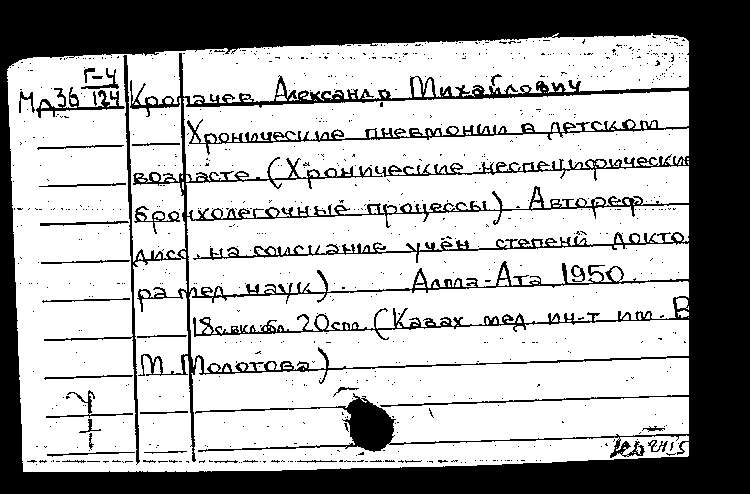 Г-4
Мд36 124 Кропачев, Александр Михайлович
Хронические пневмонии в детском
возрасте. (Хронические неспецифические
бронхолегочные процессы). Автореф.
дисс. на соискание учён степени докто
ра мед. наук). Алма-Ата 1950.
18с.вкл.обл. 20см. (Казах мед. ин-т им. В
М. Молотова).